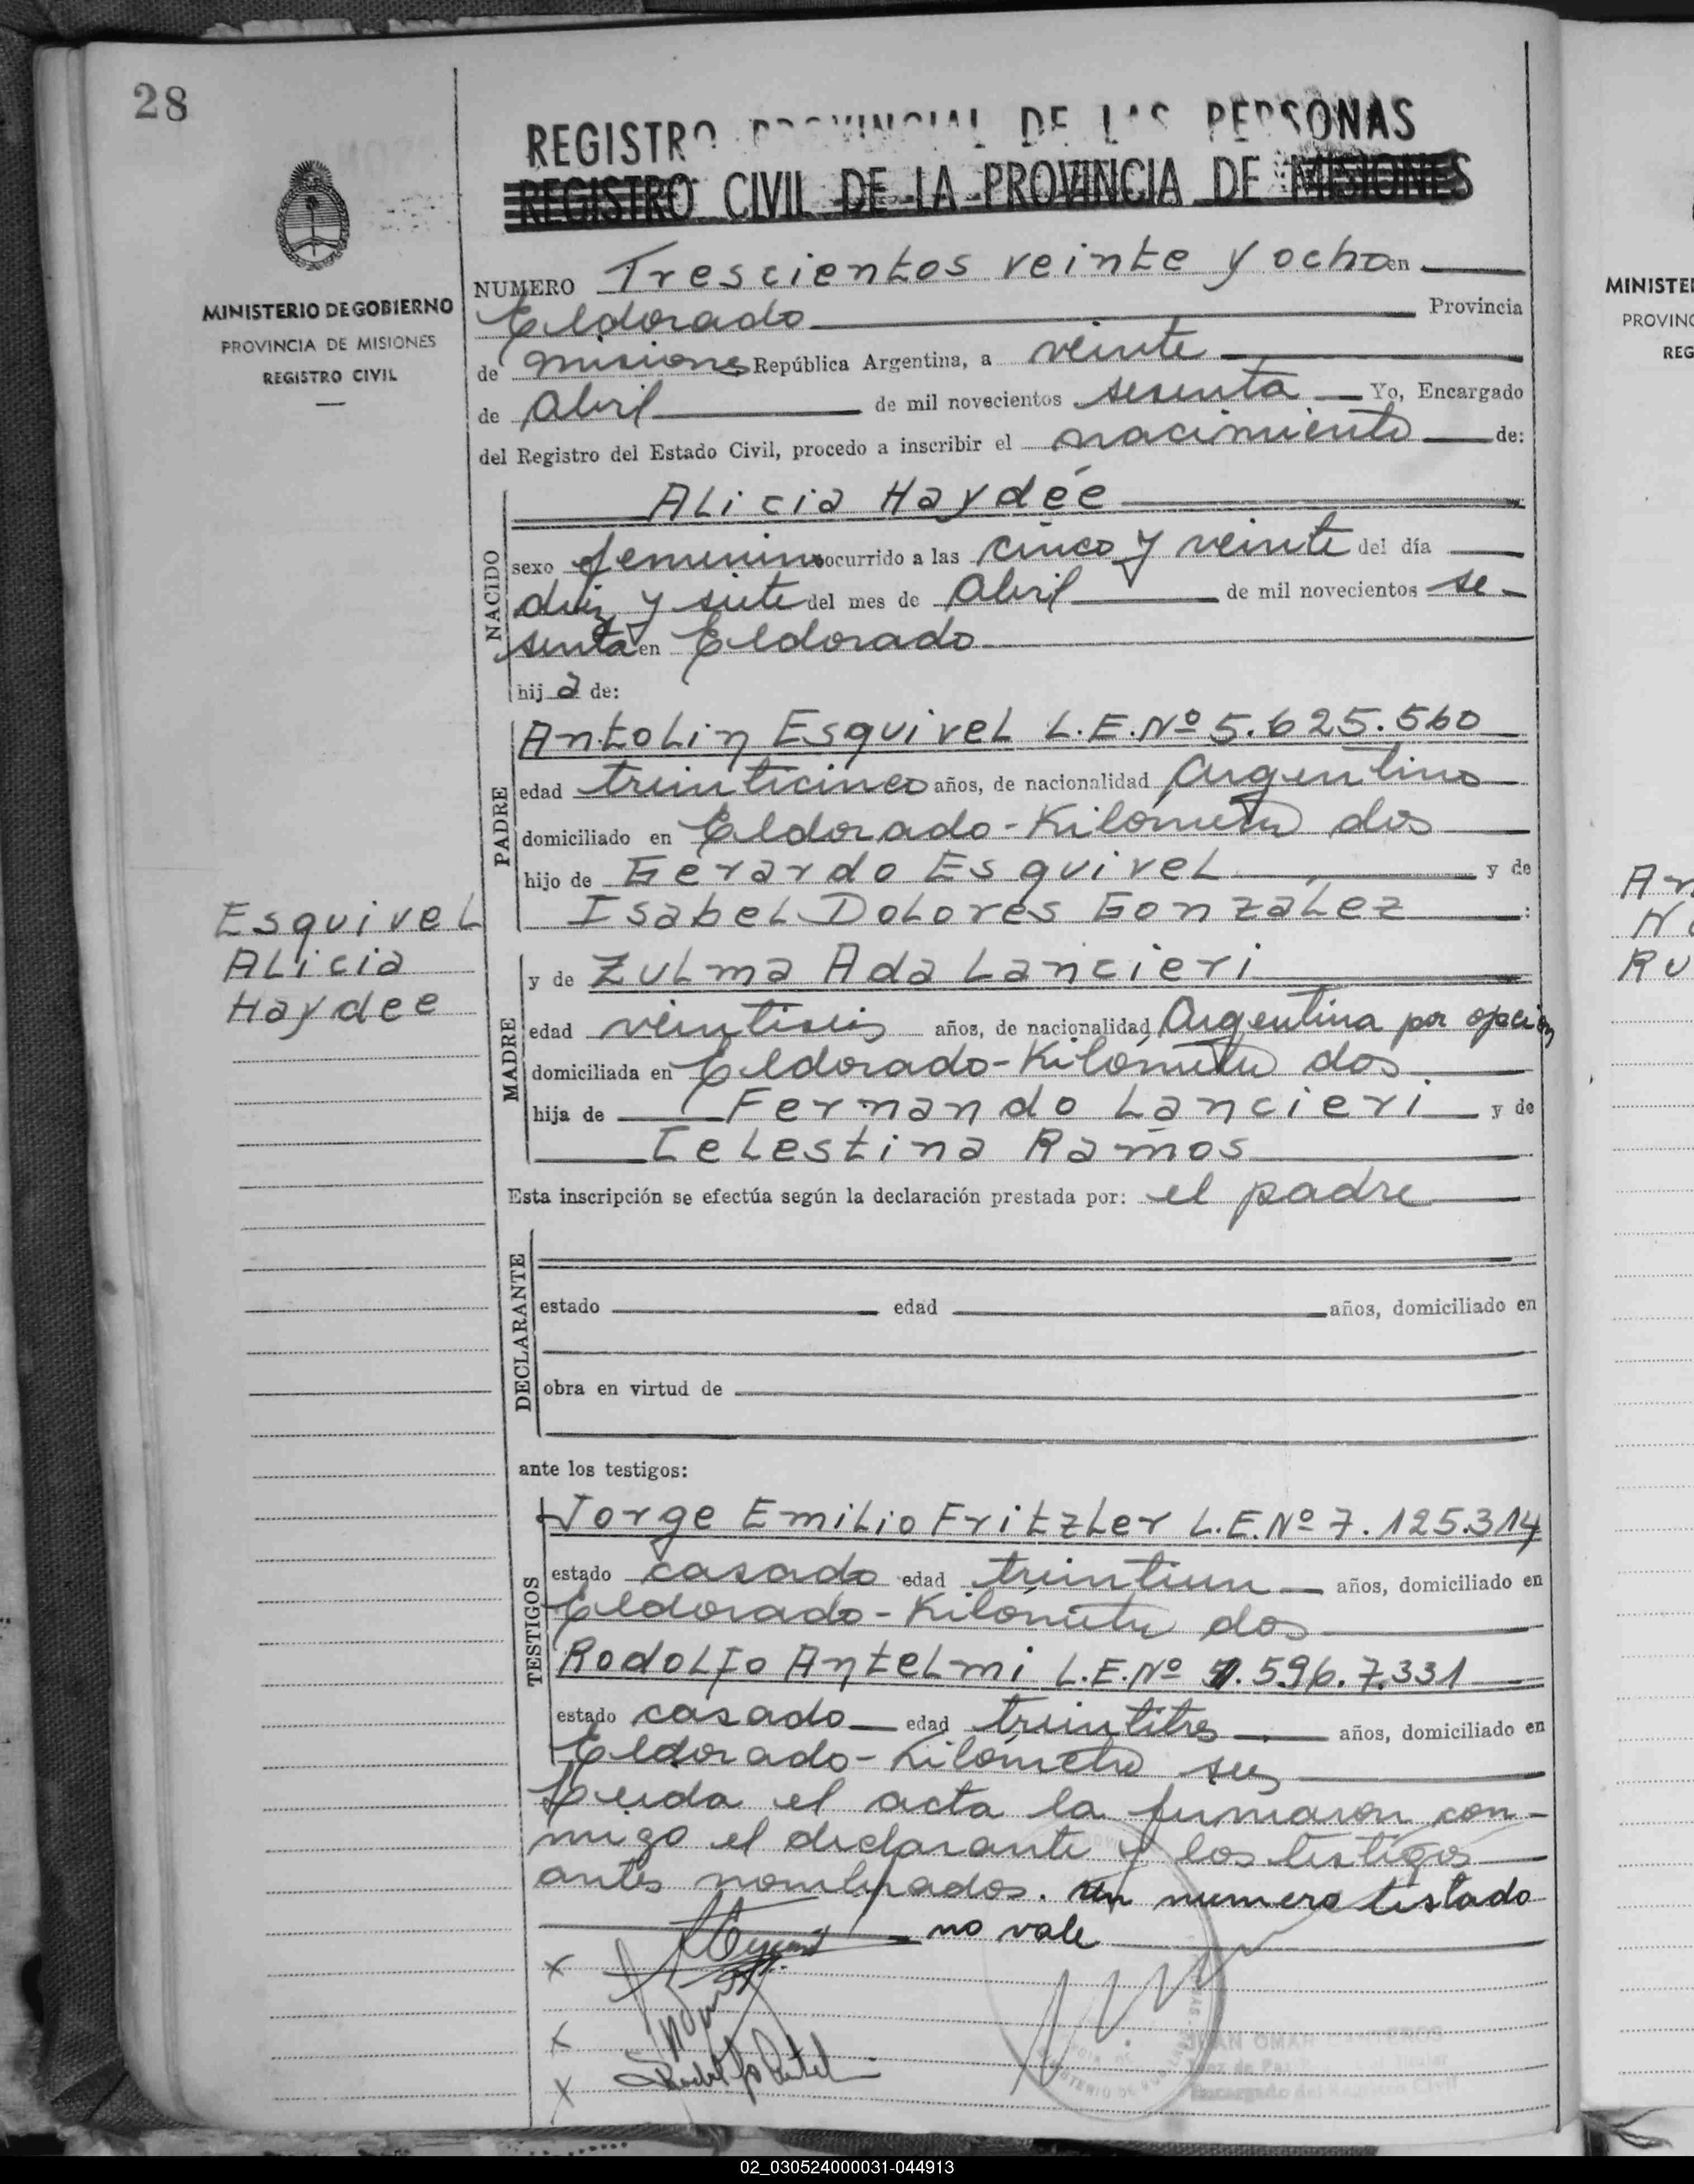 28
REGISTRO PROVINCIAL DE LAS PERSONAS
REGISTRO CIVIL DE LA PROVINCIA DE MISIONES
MINISTERIO DE GOBIERNO
PROVINCIA DE MISIONES
REGISTRO CIVIL
NUMERO Trescientos veinte y ocho en
Eldorado Provincia
de misiones República Argentina, a veinte
de abril de mil novecientos sesenta Yo, Encargado
del Registro del Estado Civil, procedo a inscribir el nacimiento de:
NACIDO
Alicia Haydée
sexo femenino ocurrido a las cinco y veinte del día
diez y siete del mes de abril de mil novecientos se-
senta en Eldorado
hija de:
PADRE
Antolin Esquivel L.E.Nº 5.625.560
edad treinticinco años, de nacionalidad Argentino
domiciliado en Eldorado-Kilómetro dos
hijo de Gerardo Esquivel y de
Isabel Dolores Gonzalez :
Esquivel
Alicia
Haydee
MADRE
y de Zulma Ada Lancieri
edad veintiseis años, de nacionalidad Argentina por opción
domiciliada en Eldorado-Kilómetro dos
hija de Fernando Lancieri y de
Celestina Ramos
Esta inscripción se efectúa según la declaración prestada por: el padre
DECLARANTE
estado edad años, domiciliado en
obra en virtud de
ante los testigos:
TESTIGOS
Jorge Emilio Fritzler L.E.Nº 7.125.314
estado casado edad treintiun años, domiciliado en
Eldorado-Kilómetro dos
Rodolfo Antelmi L.E.Nº 596.7.331
estado casado edad treintitres años, domiciliado en
Eldorado-Kilómetro seis
Leida el acta la firmaron con-
migo el declarante y los testigos
antes nombrados. un numero testado
no vale
x
x
x
JUAN OMAR
Juez de Paz Titular
Encargado del Registro Civil
MINISTE
PROVINC
REG
Ar
Ru
02_030524000031-044913